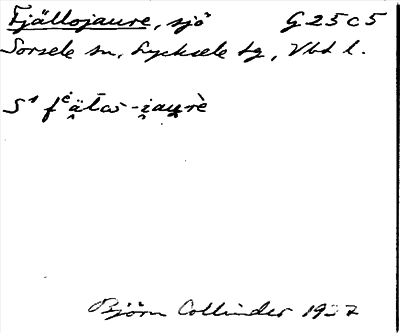 Fjällojaure, sjö G 25 c 5
Sorsele sn, Lycksele lg, Vbd l.
Björn Collinder 1937